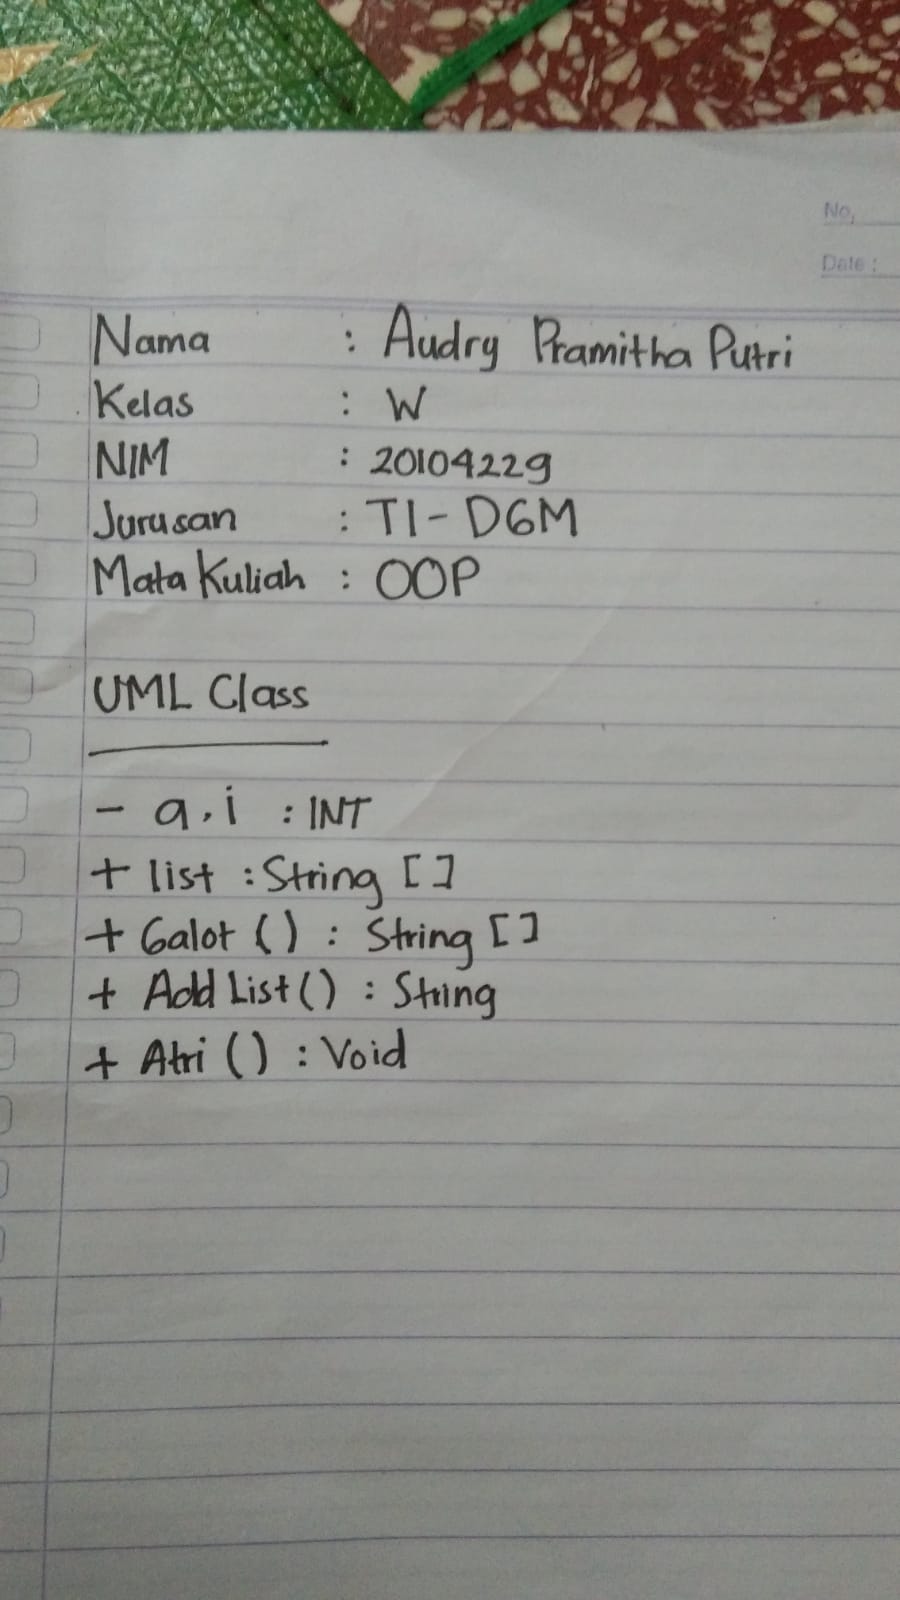 No,
Date :
Nama : Audry Pramitha Putri
Kelas : W
NIM : 20104229
Jurusan : TI - DGM
Mata Kuliah : OOP
UML Class
- a, i : INT
+ list : String []
+ Galot () : String []
+ Add List () : String
+ Atri () : Void